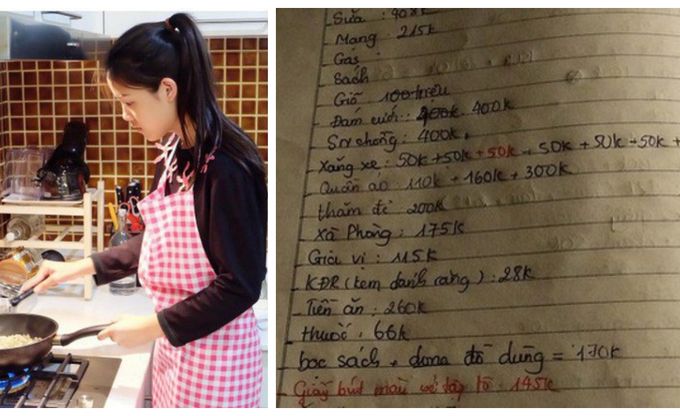 Sữa : 408k
Mạng : 215k
Gas
Sách
Giỗ 100 triệu
Đám cưới : 400k 400k
SN chồng : 400k
Xăng xe : 50k + 50k + 50k + 50k + 50k + 50k +
Quần áo : 110k + 160k + 300k
thăm đẻ 200k
Xà Phòng : 175k
Gia vị : 115k
KĐR (kem đánh răng) : 28k
Tiền ăn : 260k
thuốc : 66k
bọc sách + dụng đồ dùng = 170k
Giấy bút màu vẽ tập tô : 145k